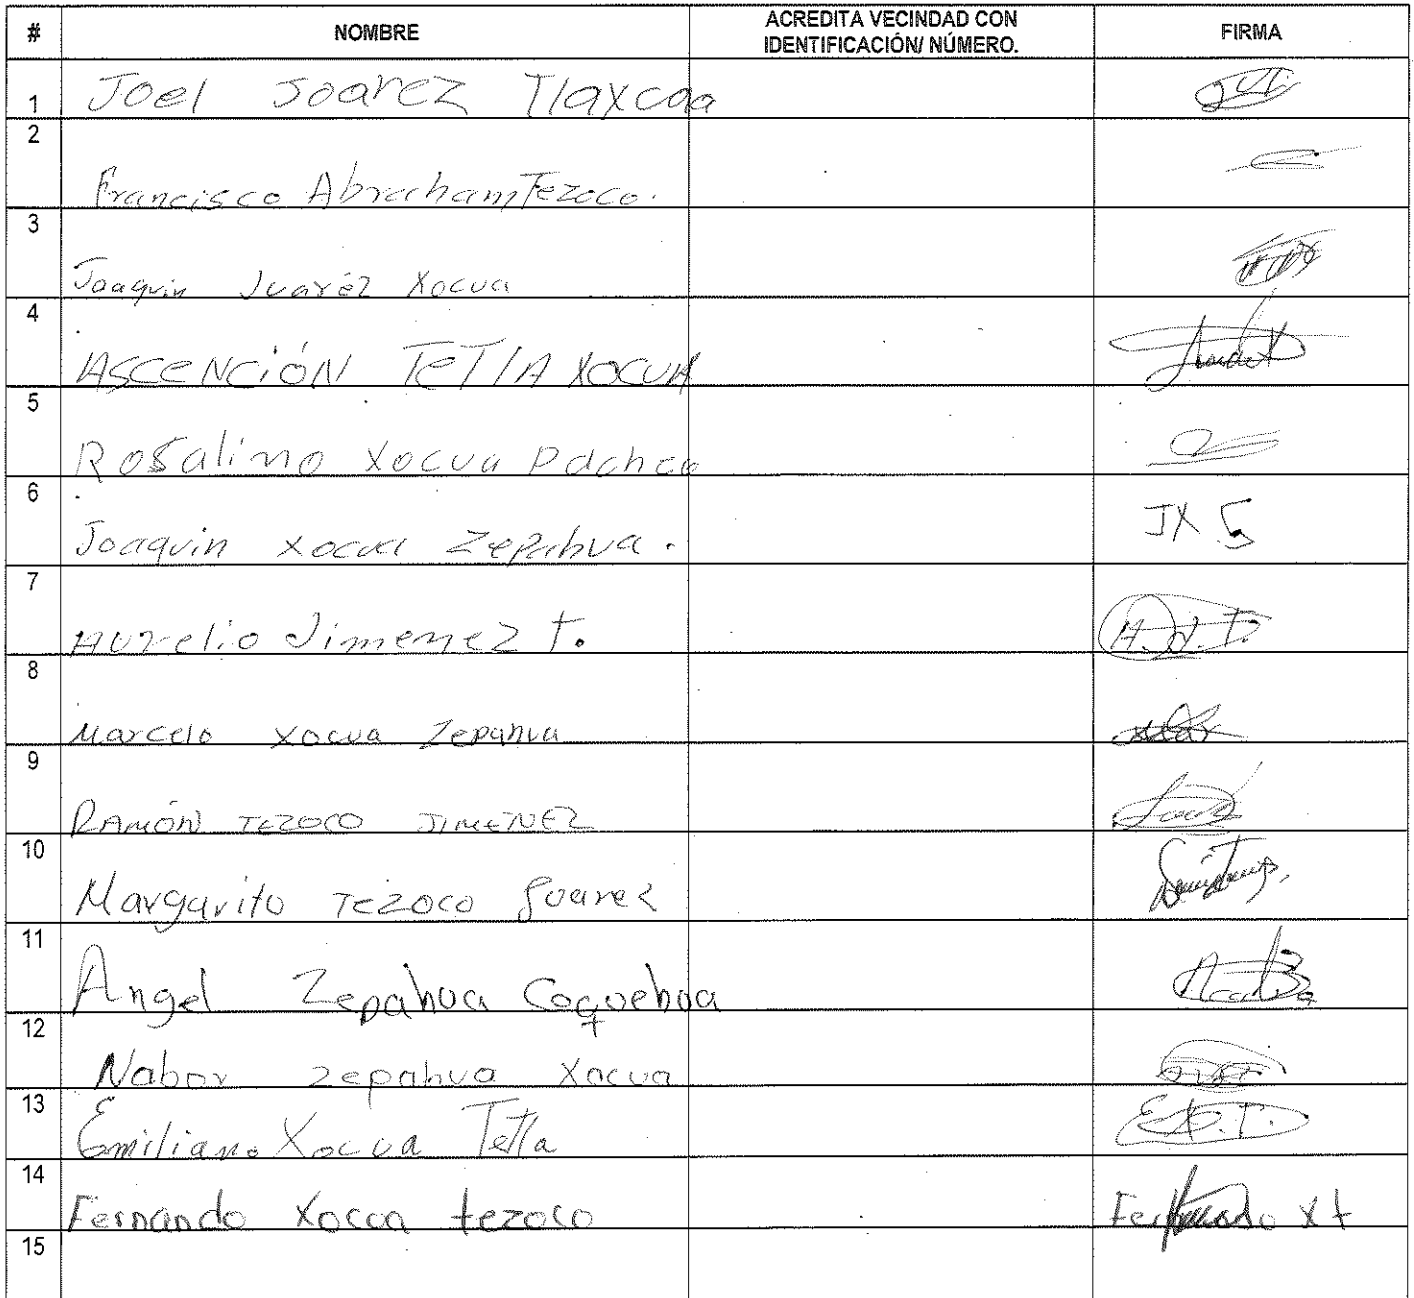 # NOMBRE ACREDITA VECINDAD CON IDENTIFICACIÓN/ NÚMERO. FIRMA
1 Joel Joarez Tlaxcaa
2 Francisco Abraham Tezoco.
3 Joaquin Juaréz Xocua
4 ASCENCIÓN TETlA XOCUA
5 Rosalino Xocua Pacheco
6 Joaquin xocua Zepahua. JX
7 Aurelio Jimenez t. A.J.T.
8 Marcelo xocua Zepahua
9 RAMÓN TEZOCO JIMENEZ
10 Margarito Tezoco Juarez
11 Angel Zepahua Coquehua
12 Nabor zepahua Xocua
13 Emiliano Xocua Tetla
14 Fernando Xocoa tezoco Fernando X t
15